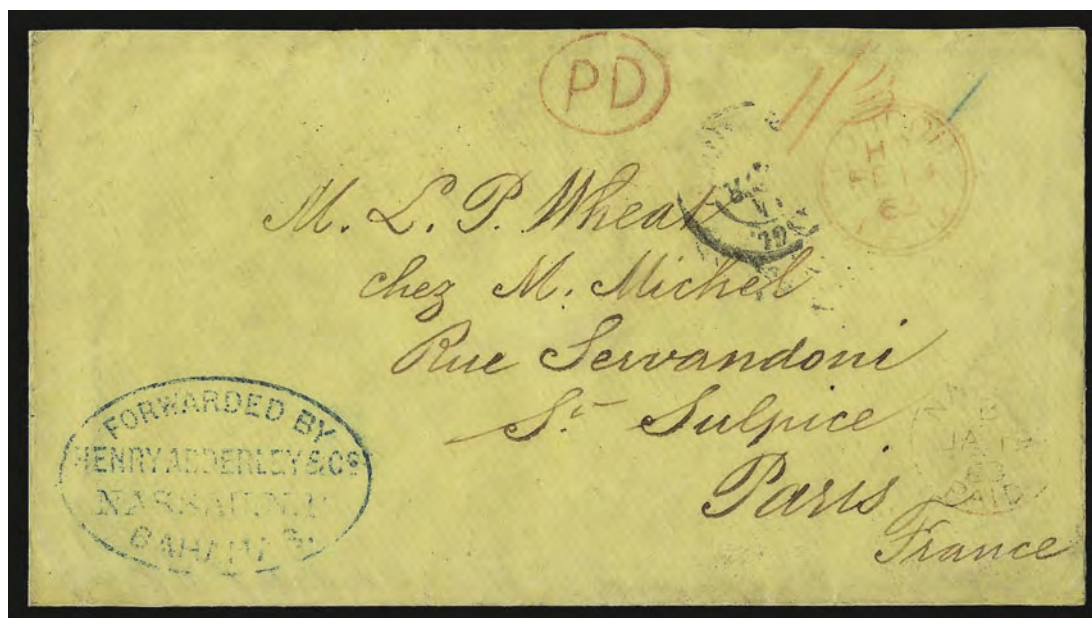 PD
M. L. P. Wheat
chez M. Michel
Rue Servandoni
St Sulpice
Paris
France
FORWARDED BY
HENRY ADDERLEY & Co
NASSAU N.P.
BAHAMAS
PAID